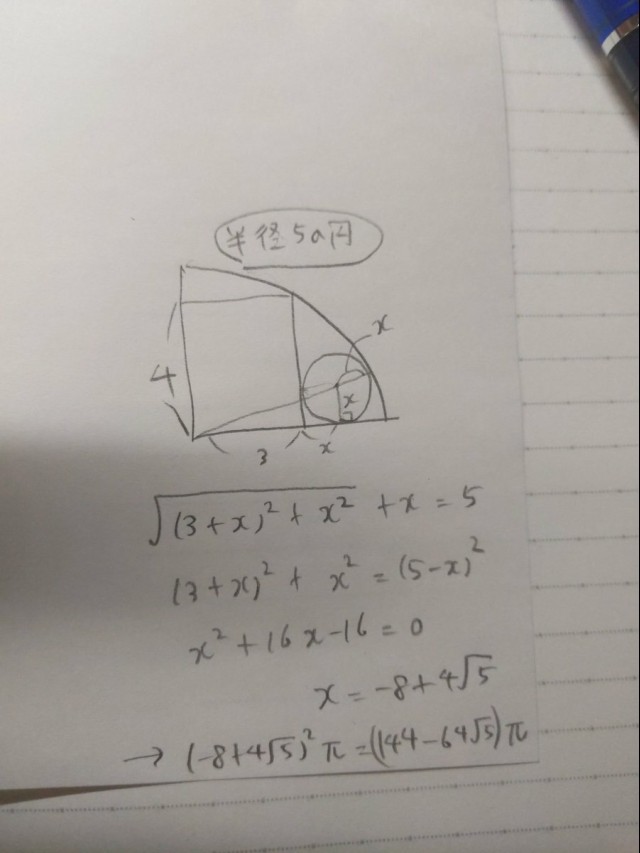 半径5の円
x
4
x
3
x
√(3+x)² + x² + x = 5
(3+x)² + x² = (5-x)²
x² + 16x - 16 = 0
x = -8 + 4√5
→ (-8+4√5)² π = (144-64√5) π